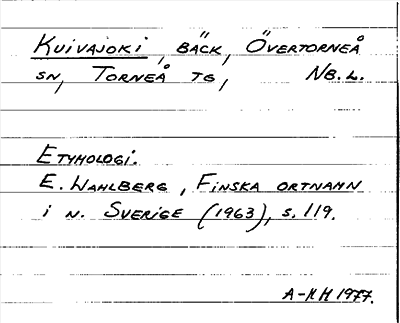 Kuivajoki, BÄCK, ÖVERTORNEÅ
SN, TORNEÅ TG, NB.L.
ETYMOLOGI.
E. WAHLBERG, FINSKA ORTNAMN
i N. SVERIGE (1963), S. 119.
A-KH 1977.